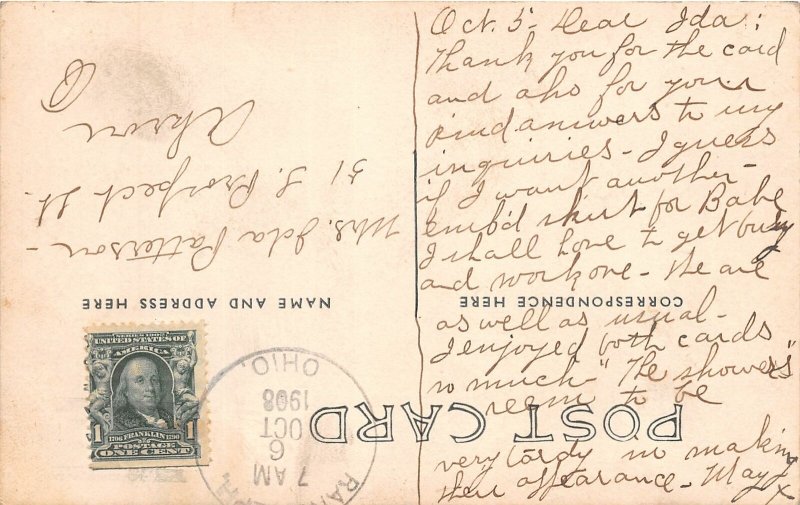 Oct. 5 - Dear Ida:
Thank you for the card
and also for your
kind answers to my
inquiries - I guess
if I want another
emb'd skirt for Babe
I shall have to get busy
and work one - We are
as well as usual -
I enjoyed both cards
so much - "The showers"
seem to be
very tardy in making
their appearance - May
Mrs. Ida Patterson -
51 S. Prospect St.
Akron
O
NAME AND ADDRESS HERE
CORRESPONDENCE HERE
POST CARD
SERIES 1902
UNITED STATES OF
AMERICA
1706 FRANKLIN 1790
POSTAGE
1 ONE CENT 1
OCT
6
7 AM
1908
OHIO.